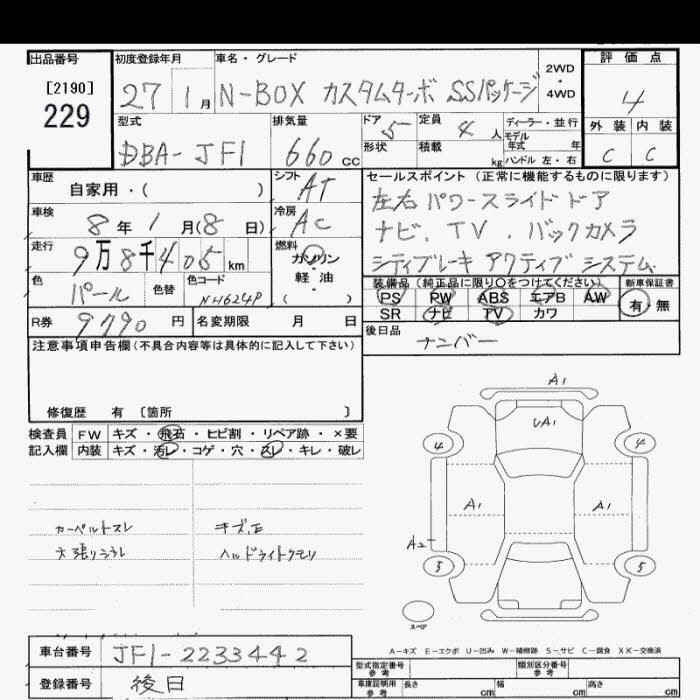 出品番号 初度登録年月 車名・グレード 評価点
[2190]
229
27 1月 N-BOX カスタムターボ SSパッケージ 2WD・4WD 4
型式 排気量 ドア 5 定員 4人 ディーラー・並行 外装 内装
モデル年式 年
DBA-JF1 660cc 形状 積載 kg ハンドル 左・右 C C
車歴 自家用・( ) シフト AT セールスポイント (正常に機能するものに限ります)
左右パワースライドドア
車検 8年1月(8日) 冷房 AC ナビ、TV、バックカメラ
走行 9万8千405km 燃料 ガソリン・軽油 ( ) シティブレーキ アクティブシステム
色 パール 色替 色コード NH624P 装備品 (純正品に限り○をつけてください) 新車保証書
PS PW ABS エアB AW 有・無
SR ナビ TV カワ
R券 9790円 名変期限 月 日 後日品
ナンバー
注意事項申告欄(不具合内容等は具体的に記入して下さい)
修復歴 有 [箇所 ]
検査員 FW キズ・飛石・ヒビ割・リペア跡・×要
記入欄 内装 キズ・汚レ・コゲ・穴・スレ・キレ・破レ
カーペットスレ
天張りうろし
ヘッドライトクモリ
A1
UA1
4 4
A1 A1
A2
5 5
スペア
A-キズ E-エクボ U-凹み W-補修跡 S-サビ C-腐食 XX-交換済
車台番号 JF1-2233442 型式指定番号 参考 類別区分番号 参考
登録番号 後日 車庫証明用 参考 長さ cm 幅 cm 高さ cm